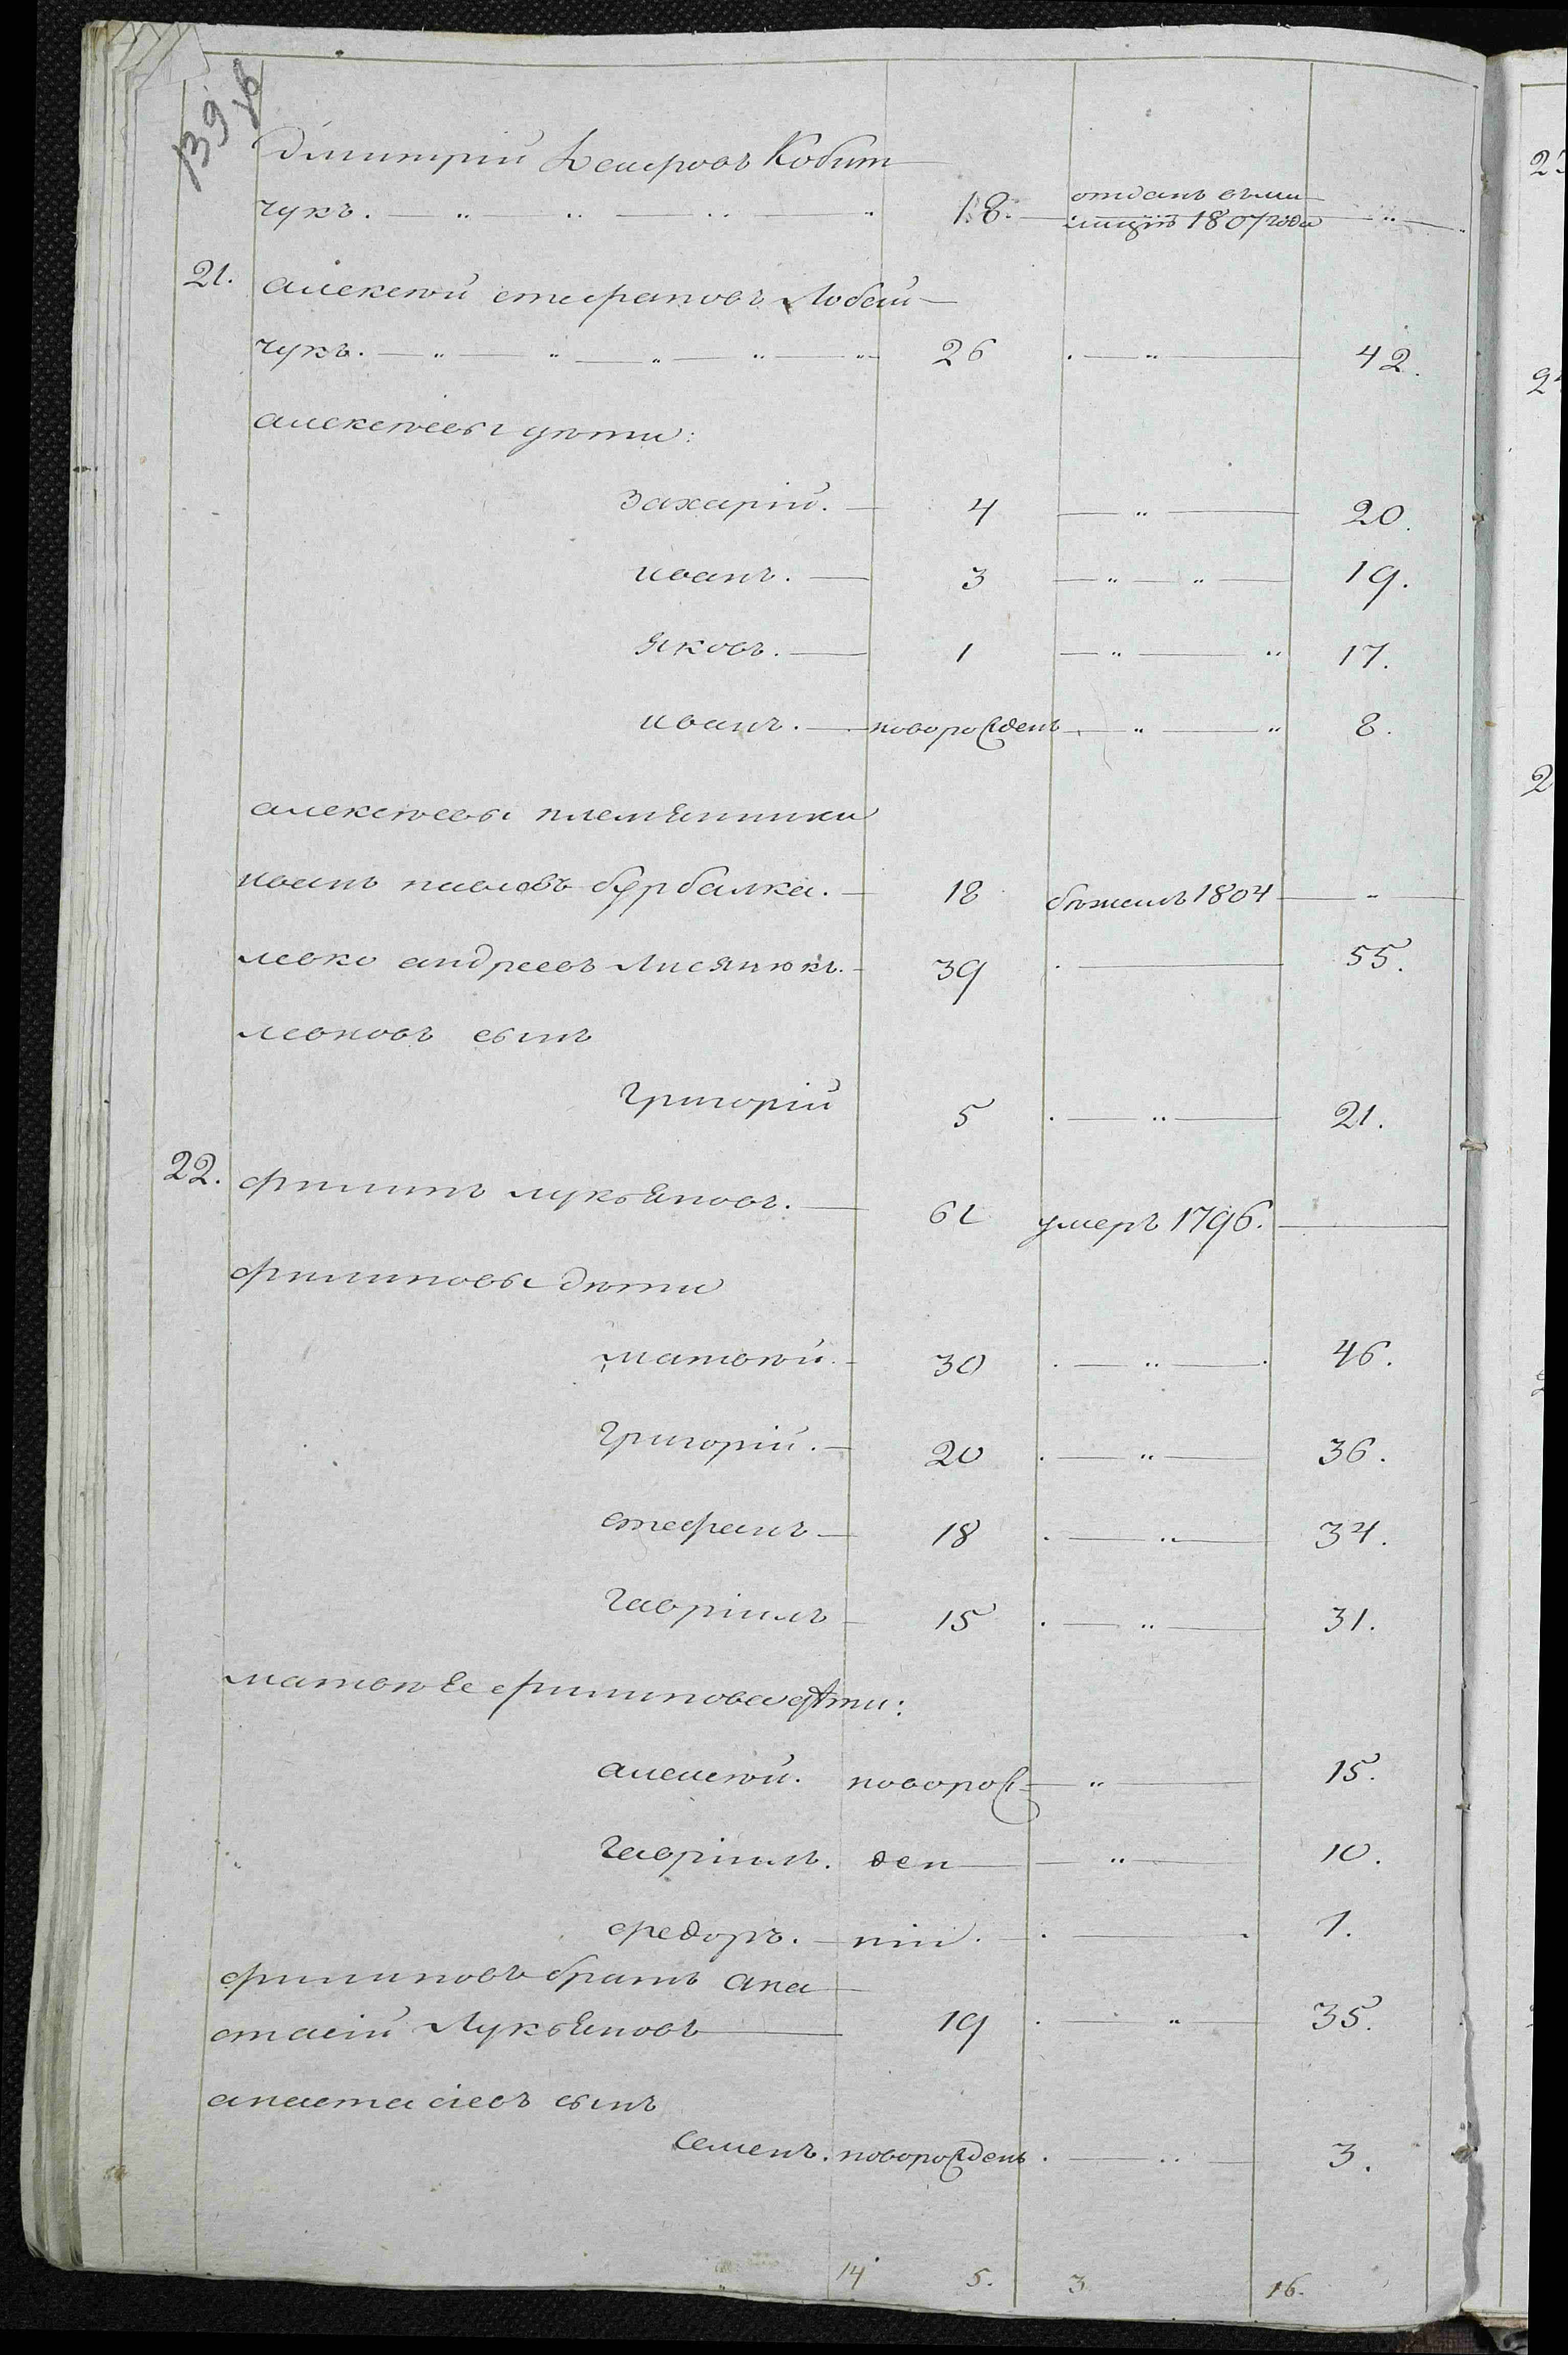 139 об
Дмитрій Феdоровъ Кобит
чукъ. 18. отданъ въ ми
лицію 1807 года
21. Алексѣй Стефановъ Лобай
чукъ. 26 42.
Алексѣевы дѣти:
Захарій. 4 20.
Иванъ. 3 19.
Яковъ. 1 17.
Иванъ. новорожденъ 8.
Алексѣевы племянники
Иванъ Павловъ Бурбалка. 18 бѣжалъ 1804
Левко Андреевъ Лисянюкъ. 39 55.
Левковъ сынъ
Григорій 5 21.
22. Филипъ Лукьяновъ. 61 умеръ 1796.
Филиповы дѣти
Матвѣй. 30 46.
Григорій. 20 36.
Стефанъ 18 34.
Гавріилъ 15 31.
Матвѣя Филипова дѣти:
Алексѣй. новорож 15.
Гавріилъ. ден 10.
Федоръ. ніи. 1.
Филиповъ братъ Ана
стасій Лукьяновъ 19 35.
Анастасіевъ сынъ
Семенъ. новорожденъ. 3.
14 5. 3 16.